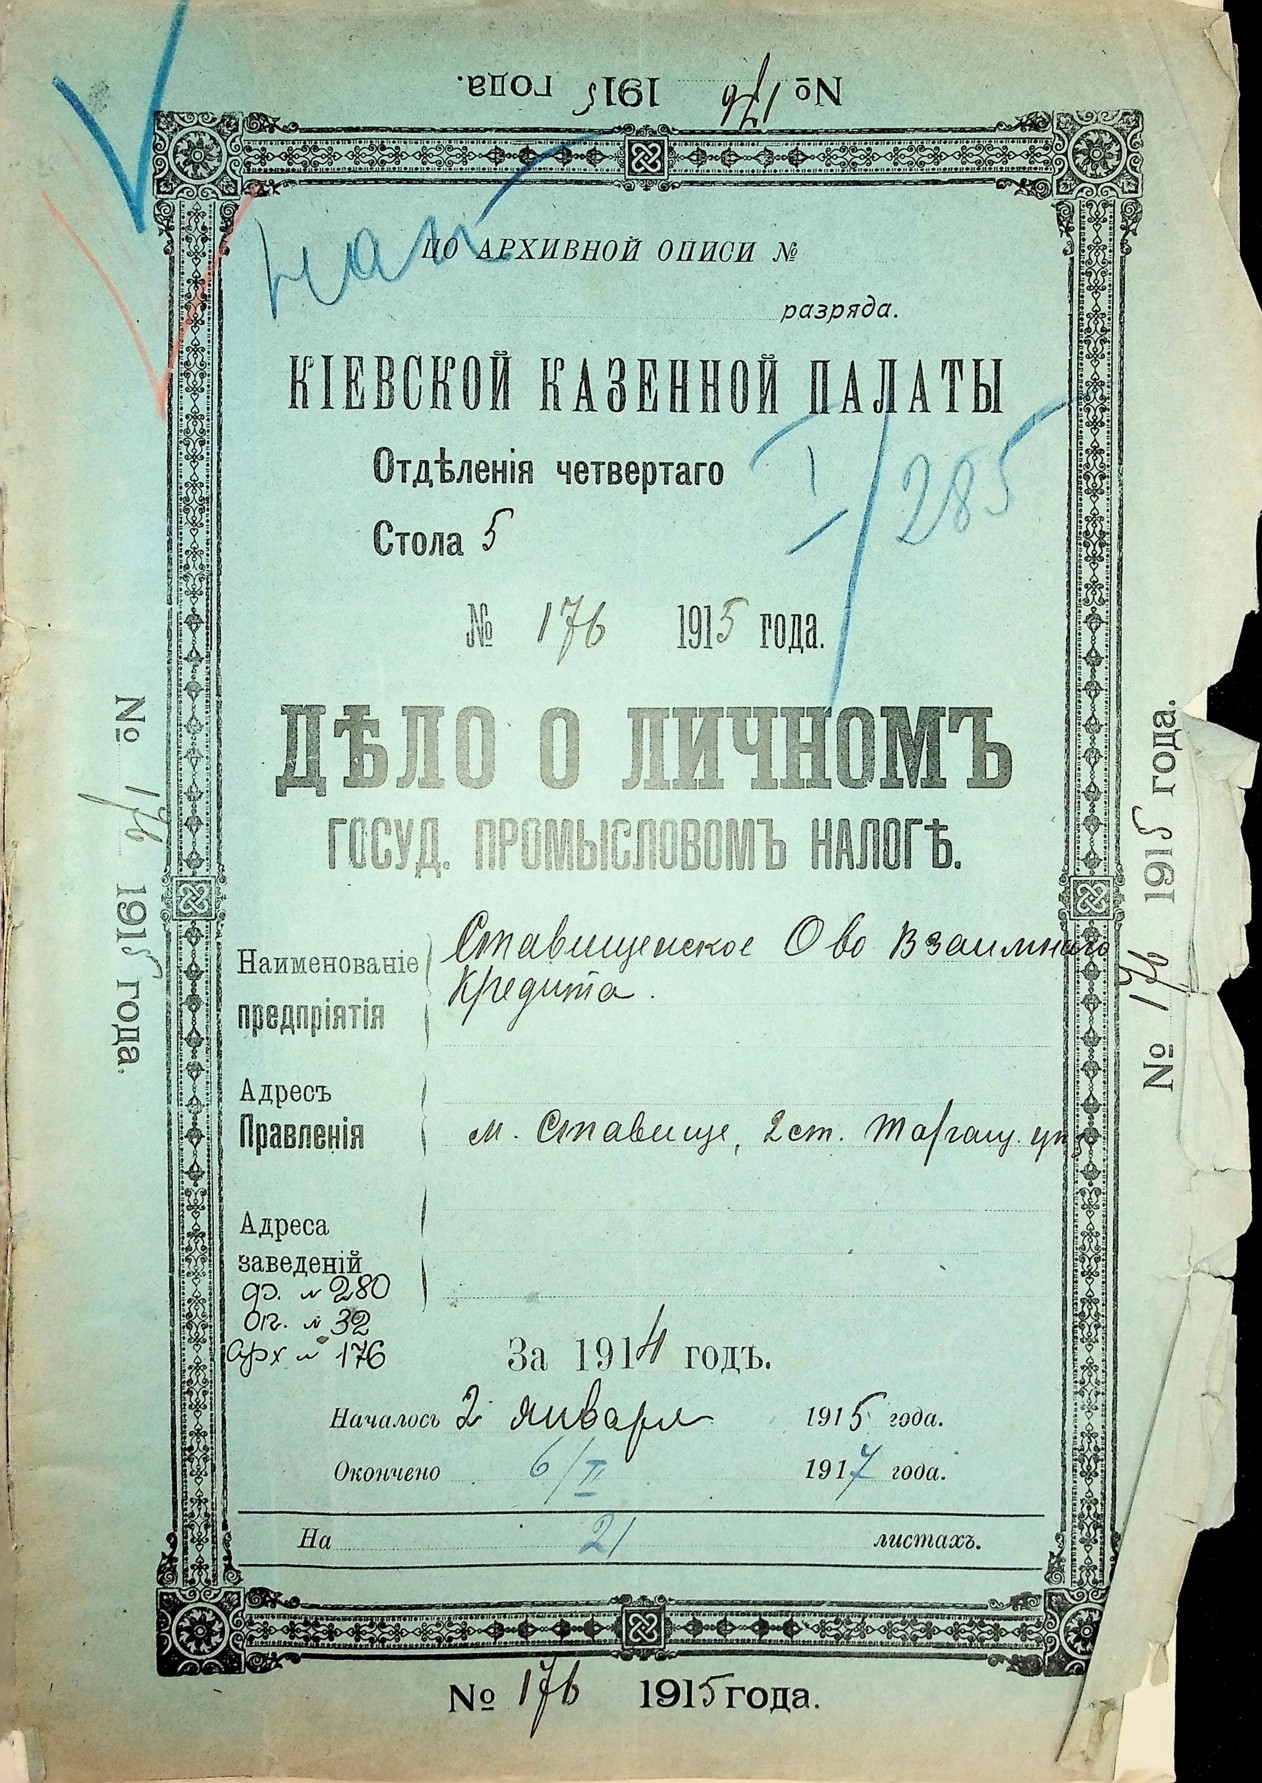 № 176 1915 года.
ПО АРХИВНОЙ ОПИСИ №
разряда.
КІЕВСКОЙ КАЗЕННОЙ ПАЛАТЫ
Отдѣленія четвертаго
I/285
Стола 5
№ 176 1915 года.
ДѢЛО О ЛИЧНОМЪ
ГОСУД. ПРОМЫСЛОВОМЪ НАЛОГѢ.
Наименованіе
предпріятія
Ставищенское О во Взаимнаго
Кредита.
Адресъ
Правленія
м. Ставище, 2 ст. Таращ. у.
Адреса
заведеній
ф. № 280
оп. № 32
арх № 176
За 1914 годъ.
Началось 2 января 1915 года.
Окончено 6/II 1917 года.
На 21 листахъ.
№ 176 1915 года.
№ 176 1915 года.
№ 176 1915 года.